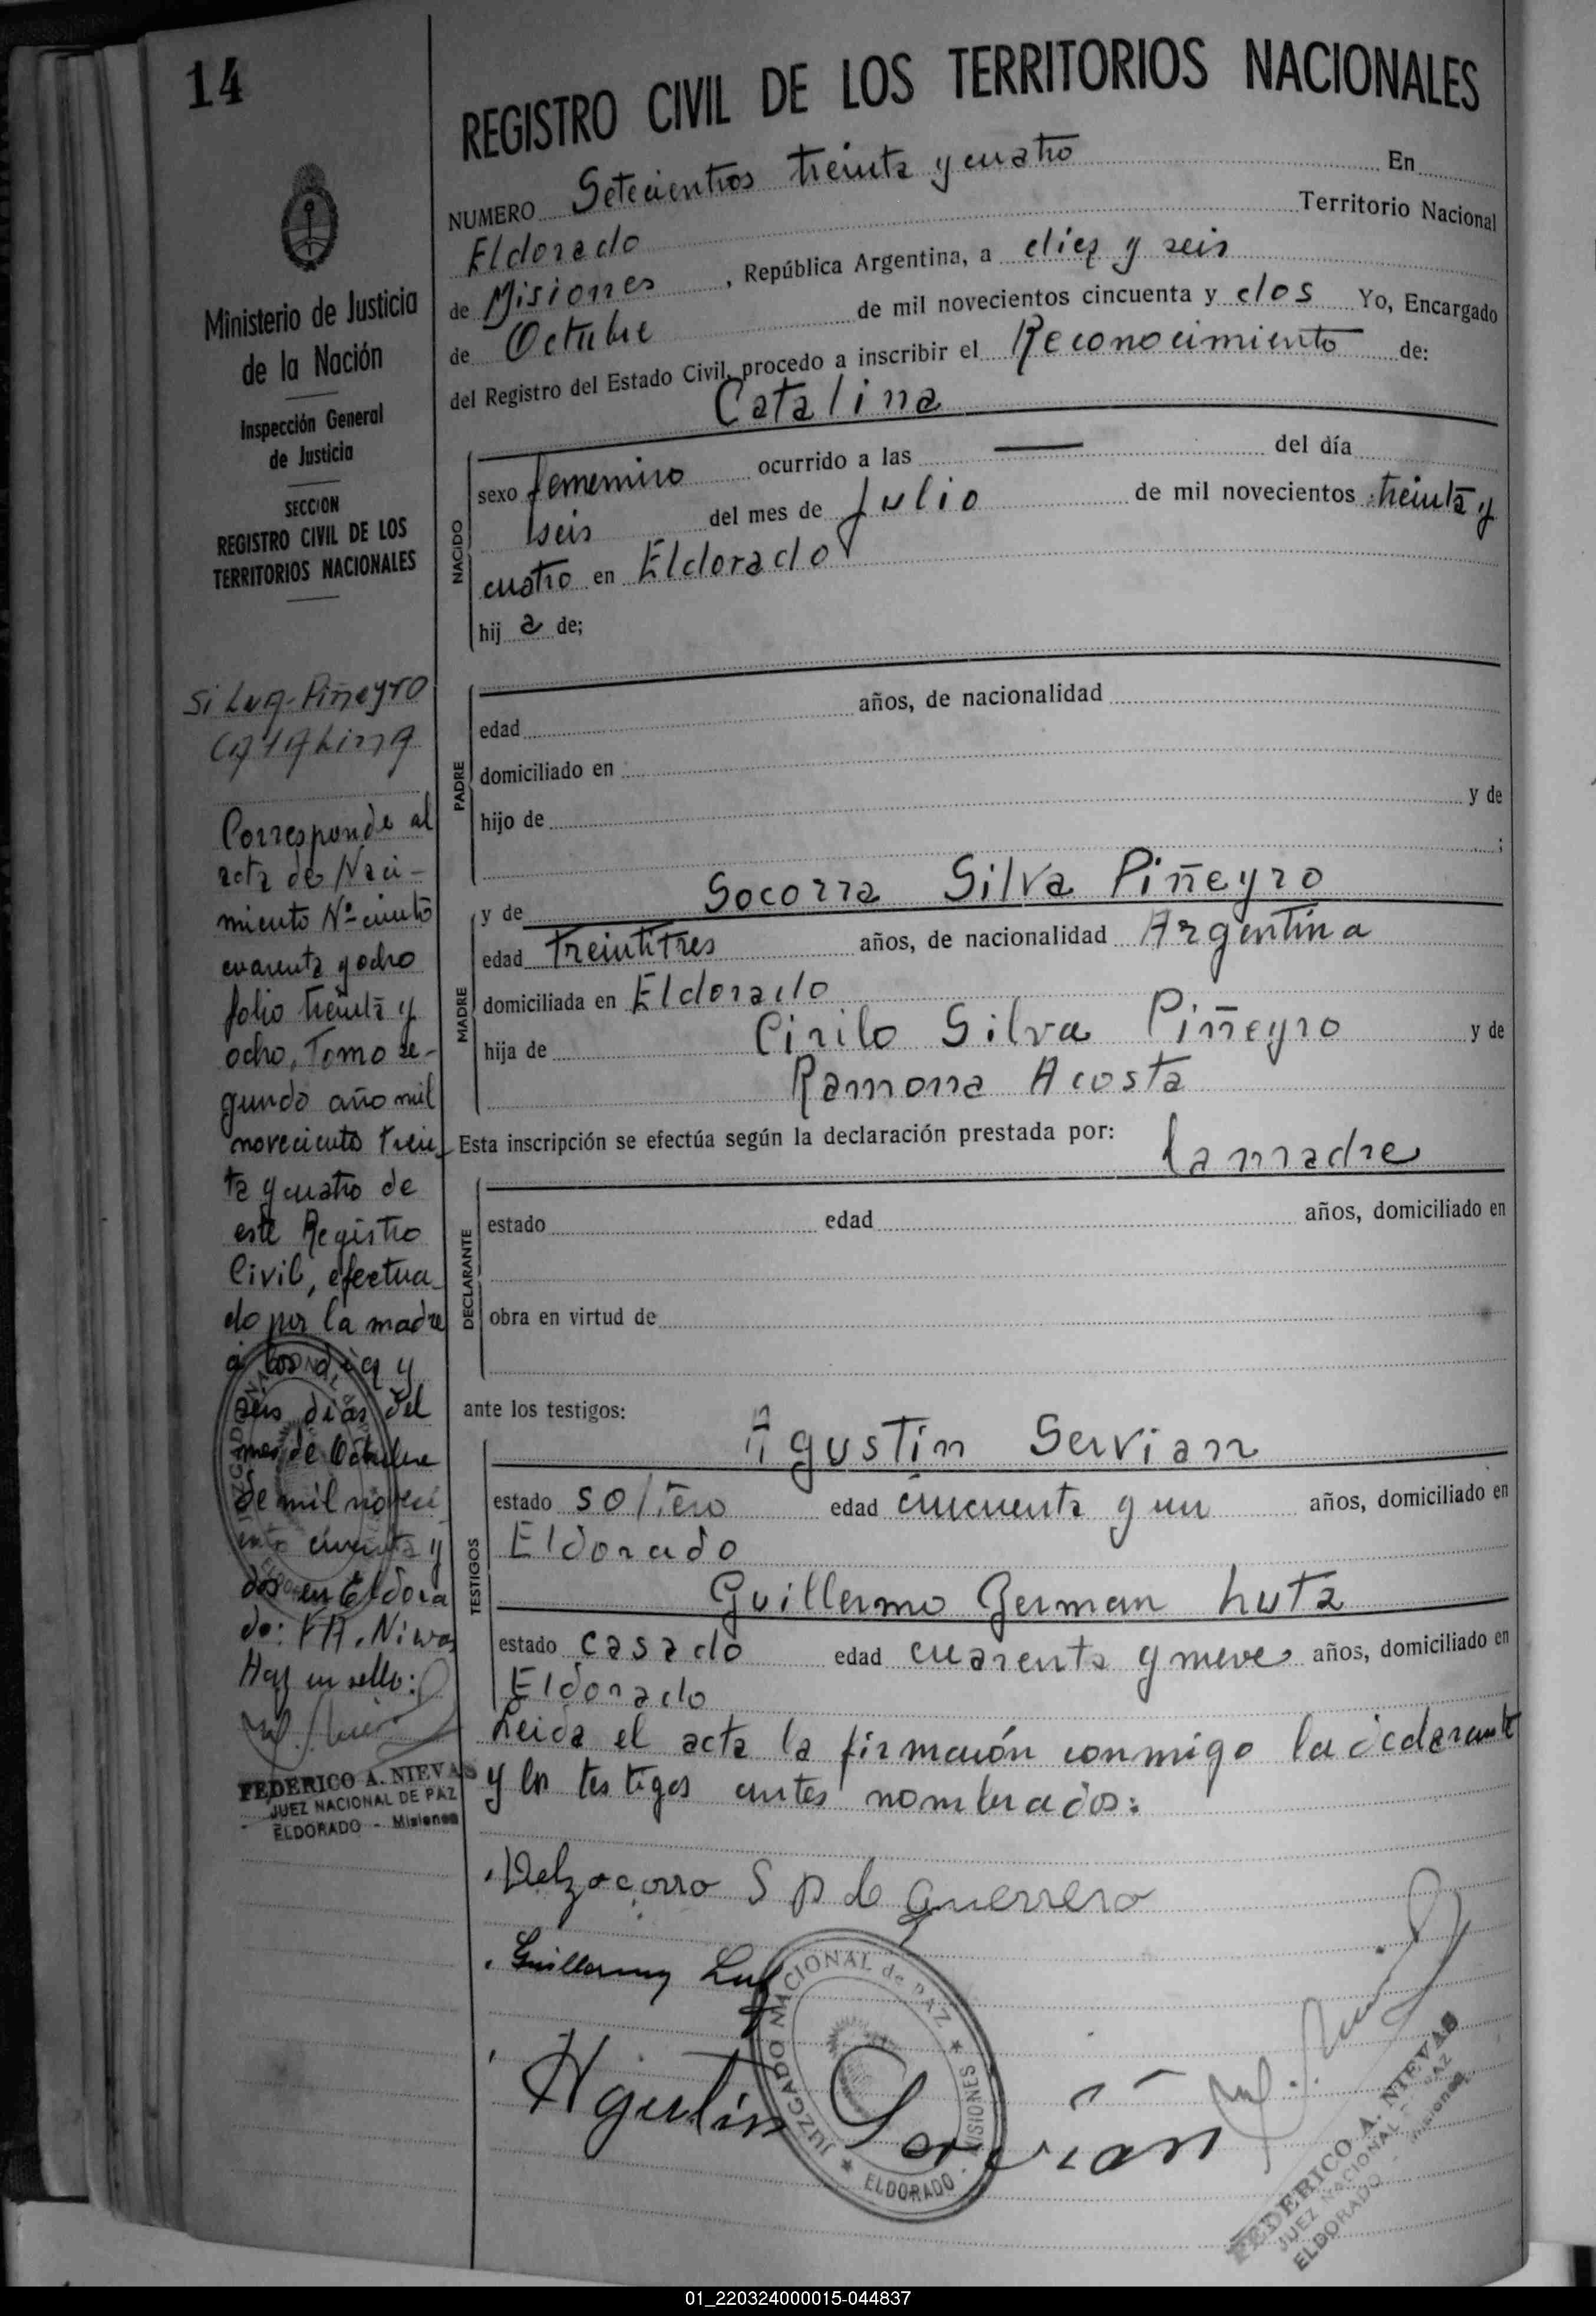 14
Ministerio de Justicia
de la Nación
Inspección General
de Justicia
SECCION
REGISTRO CIVIL DE LOS
TERRITORIOS NACIONALES
Silva-Piñeyro
Catalina
Corresponde al
acta de Naci-
miento Nº ciento
cuarenta y ocho
folio treinta y
ocho, Tomo se-
gundo año mil
noveciento trein
ta y cuatro de
este Registro
Civil, efectua
do por la madre
a los diez y
seis dias del
mes de Octubre
de mil noveci
ento cincuenta y
dos en Eldora
do: F.A. Nivas
Hay un sello:
FEDERICO A. NIEVAS
JUEZ NACIONAL DE PAZ
ELDORADO - Misiones
REGISTRO CIVIL DE LOS TERRITORIOS NACIONALES
NUMERO Setecientros treinta y cuatro En
Eldorado Territorio Nacional
de Misiones, República Argentina, a diez y seis
de Octubre de mil novecientos cincuenta y dos Yo, Encargado
del Registro del Estado Civil, procedo a inscribir el Reconocimiento de:
Catalina
NACIDO
sexo femenino ocurrido a las — del día
seis del mes de Julio de mil novecientos treinta y
cuatro en Eldorado
hij a de;
PADRE
edad años, de nacionalidad
domiciliado en
hijo de y de
;
MADRE
y de Socorra Silva Piñeyro
edad treintitres años, de nacionalidad Argentina
domiciliada en Eldorado
hija de Cirilo Silva Piñeyro y de
Ramona Acosta
Esta inscripción se efectúa según la declaración prestada por: la madre
DECLARANTE
estado edad años, domiciliado en
obra en virtud de
ante los testigos:
TESTIGOS
Agustín Servian
estado soltero edad cincuenta y un años, domiciliado en
Eldorado
Guillermo German Lutz
estado casado edad cuarenta y nueve años, domiciliado en
Eldorado
Leida el acta la firmarón conmigo la declarante
y los testigos antes nombrados:
Delzocorro S P de Guerrero
Guillermo Lutz
Agustín Servián
JUZGADO NACIONAL de PAZ
ELDORADO - MISIONES
FEDERICO A. NIEVAS
JUEZ NACIONAL DE PAZ
ELDORADO - Misiones
01_220324000015-044837